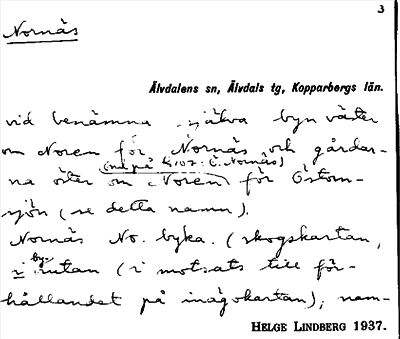 3
Nornäs
Älvdalens sn, Älvdals tg, Kopparbergs län.
vid benämna själva byn väster
om Noren för Nornäs och gårdar-
(nu på
na öster om Noren) för Östom-
sjön (se detta namn).
Nornäs No. byka. (skogskartan,
by-
i rutan (i motsats till för-
hållandet på inägokartan); nam-
HELGE LINDBERG 1937.